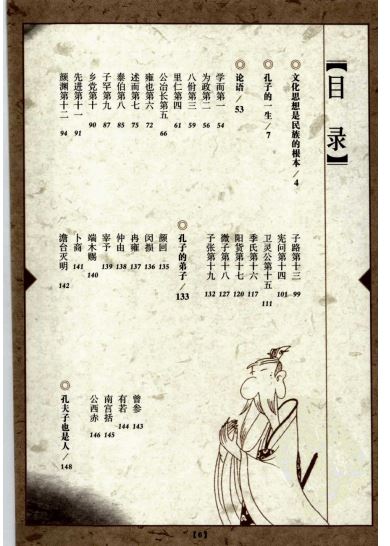 【目录】
◎文化思想是民族的根本/4
◎孔子的一生/7
◎论语/53
学而第一 54
为政第二 56
八佾第三 59
里仁第四 61
公冶长第五 66
雍也第六 72
述而第七 75
泰伯第八 85
子罕第九 87
乡党第十 90
先进第十一 91
颜渊第十二 94
子路第十三 99
宪问第十四 101
卫灵公第十五 111
季氏第十六 117
阳货第十七 120
微子第十八 127
子张第十九 132
◎孔子的弟子/133
颜回 135
闵损 136
冉雍 137
仲由 138
宰予 139
端木赐 140
卜商 141
澹台灭明 142
曾参 143
有若 144
南宫括 145
公西赤 146
◎孔夫子也是人/148
【6】